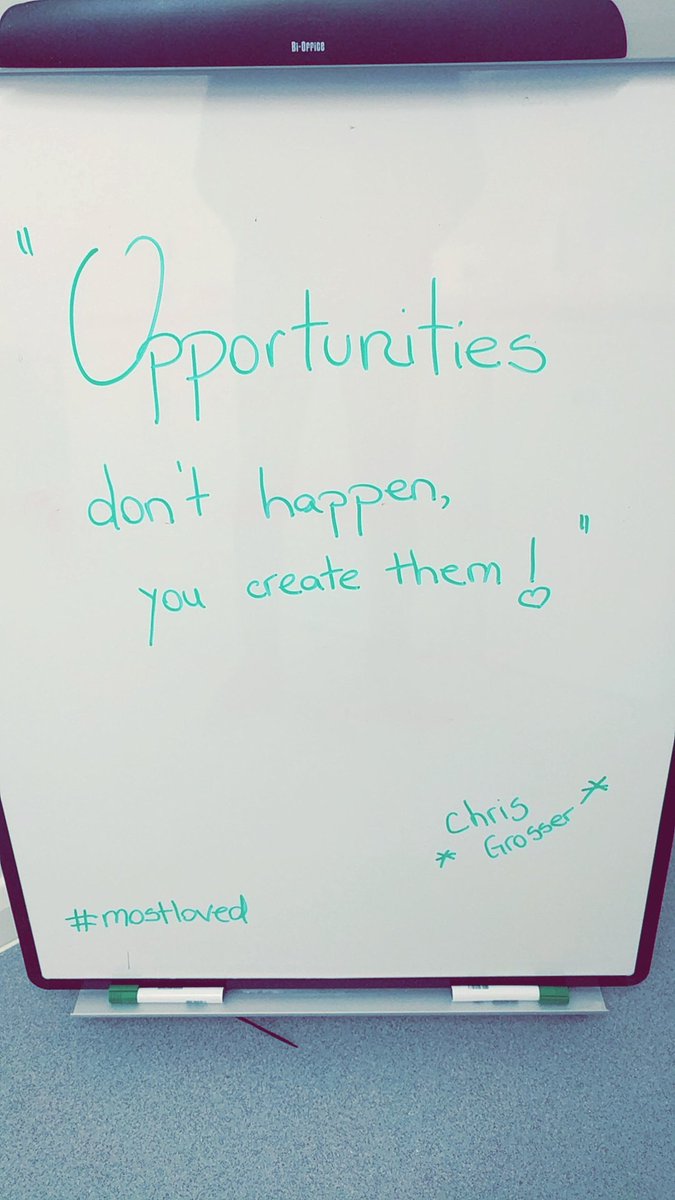 Bi-Office
"Opportunities
don't happen,
you create them!"
Chris
* Grosser *
#mostloved